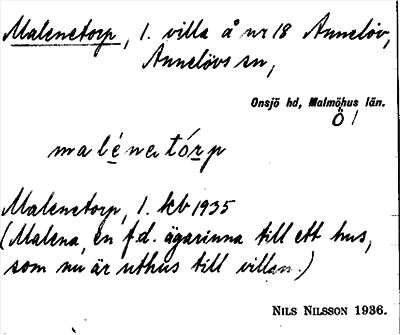 Malenetorp, 1. villa å nr 18 Annelöv,
Annelövs sn,
Onsjö hd, Malmöhus län.
Ö 1
malénetórp
Malenetorp, 1. kb 1935
(Malena, en f.d. ägarinna till ett hus,
som nu är uthus till villan.)
NILS NILSSON 1936.